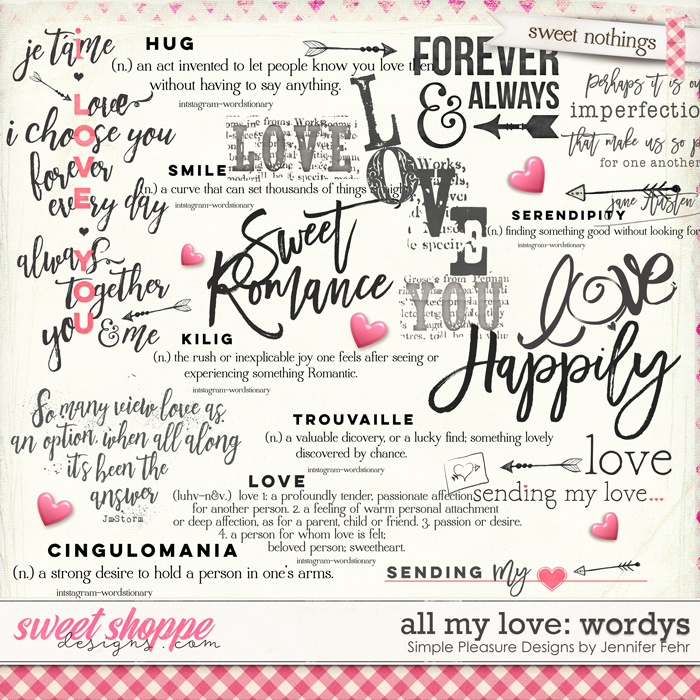 je t'aime
i LOVE YOU
Love
i choose you
forever
every day
always
together
you & me
HUG
(n.) an act invented to let people know you love them
without having to say anything.
instagram-wordstionary
FOREVER
& ALWAYS
sweet nothings
perhaps it is ou
imperfectio
that make us so p
for one another
jane Austen
LOVE
LOVE
YOU
SMILE
(n.) a curve that can set thousands of things straight
instagram-wordstionary
SERENDIPITY
(n.) finding something good without looking for
instagram-wordstionary
Sweet
Romance
love
Happily
KILIG
(n.) the rush or inexplicable joy one feels after seeing or
experiencing something Romantic.
instagram-wordstionary
So many view love as
an option, when all along
it's been the
answer
JmStorm
TROUVAILLE
(n.) a valuable dicovery, or a lucky find; something lovely
discovered by chance.
instagram-wordstionary
love
sending my love...
LOVE
(luhv-n&v.) love 1: a profoundly tender, passionate affection
for another person. 2. a feeling of warm personal attachment
or deep affection, as for a parent, child or friend. 3. passion or desire.
4. a person for whom love is felt;
beloved person; sweetheart.
instagram-wordstionary
CINGULOMANIA
(n.) a strong desire to hold a person in one's arms.
instagram-wordstionary
SENDING My
sweet shoppe
designs.com
all my love: wordys
Simple Pleasure Designs by Jennifer Fehr